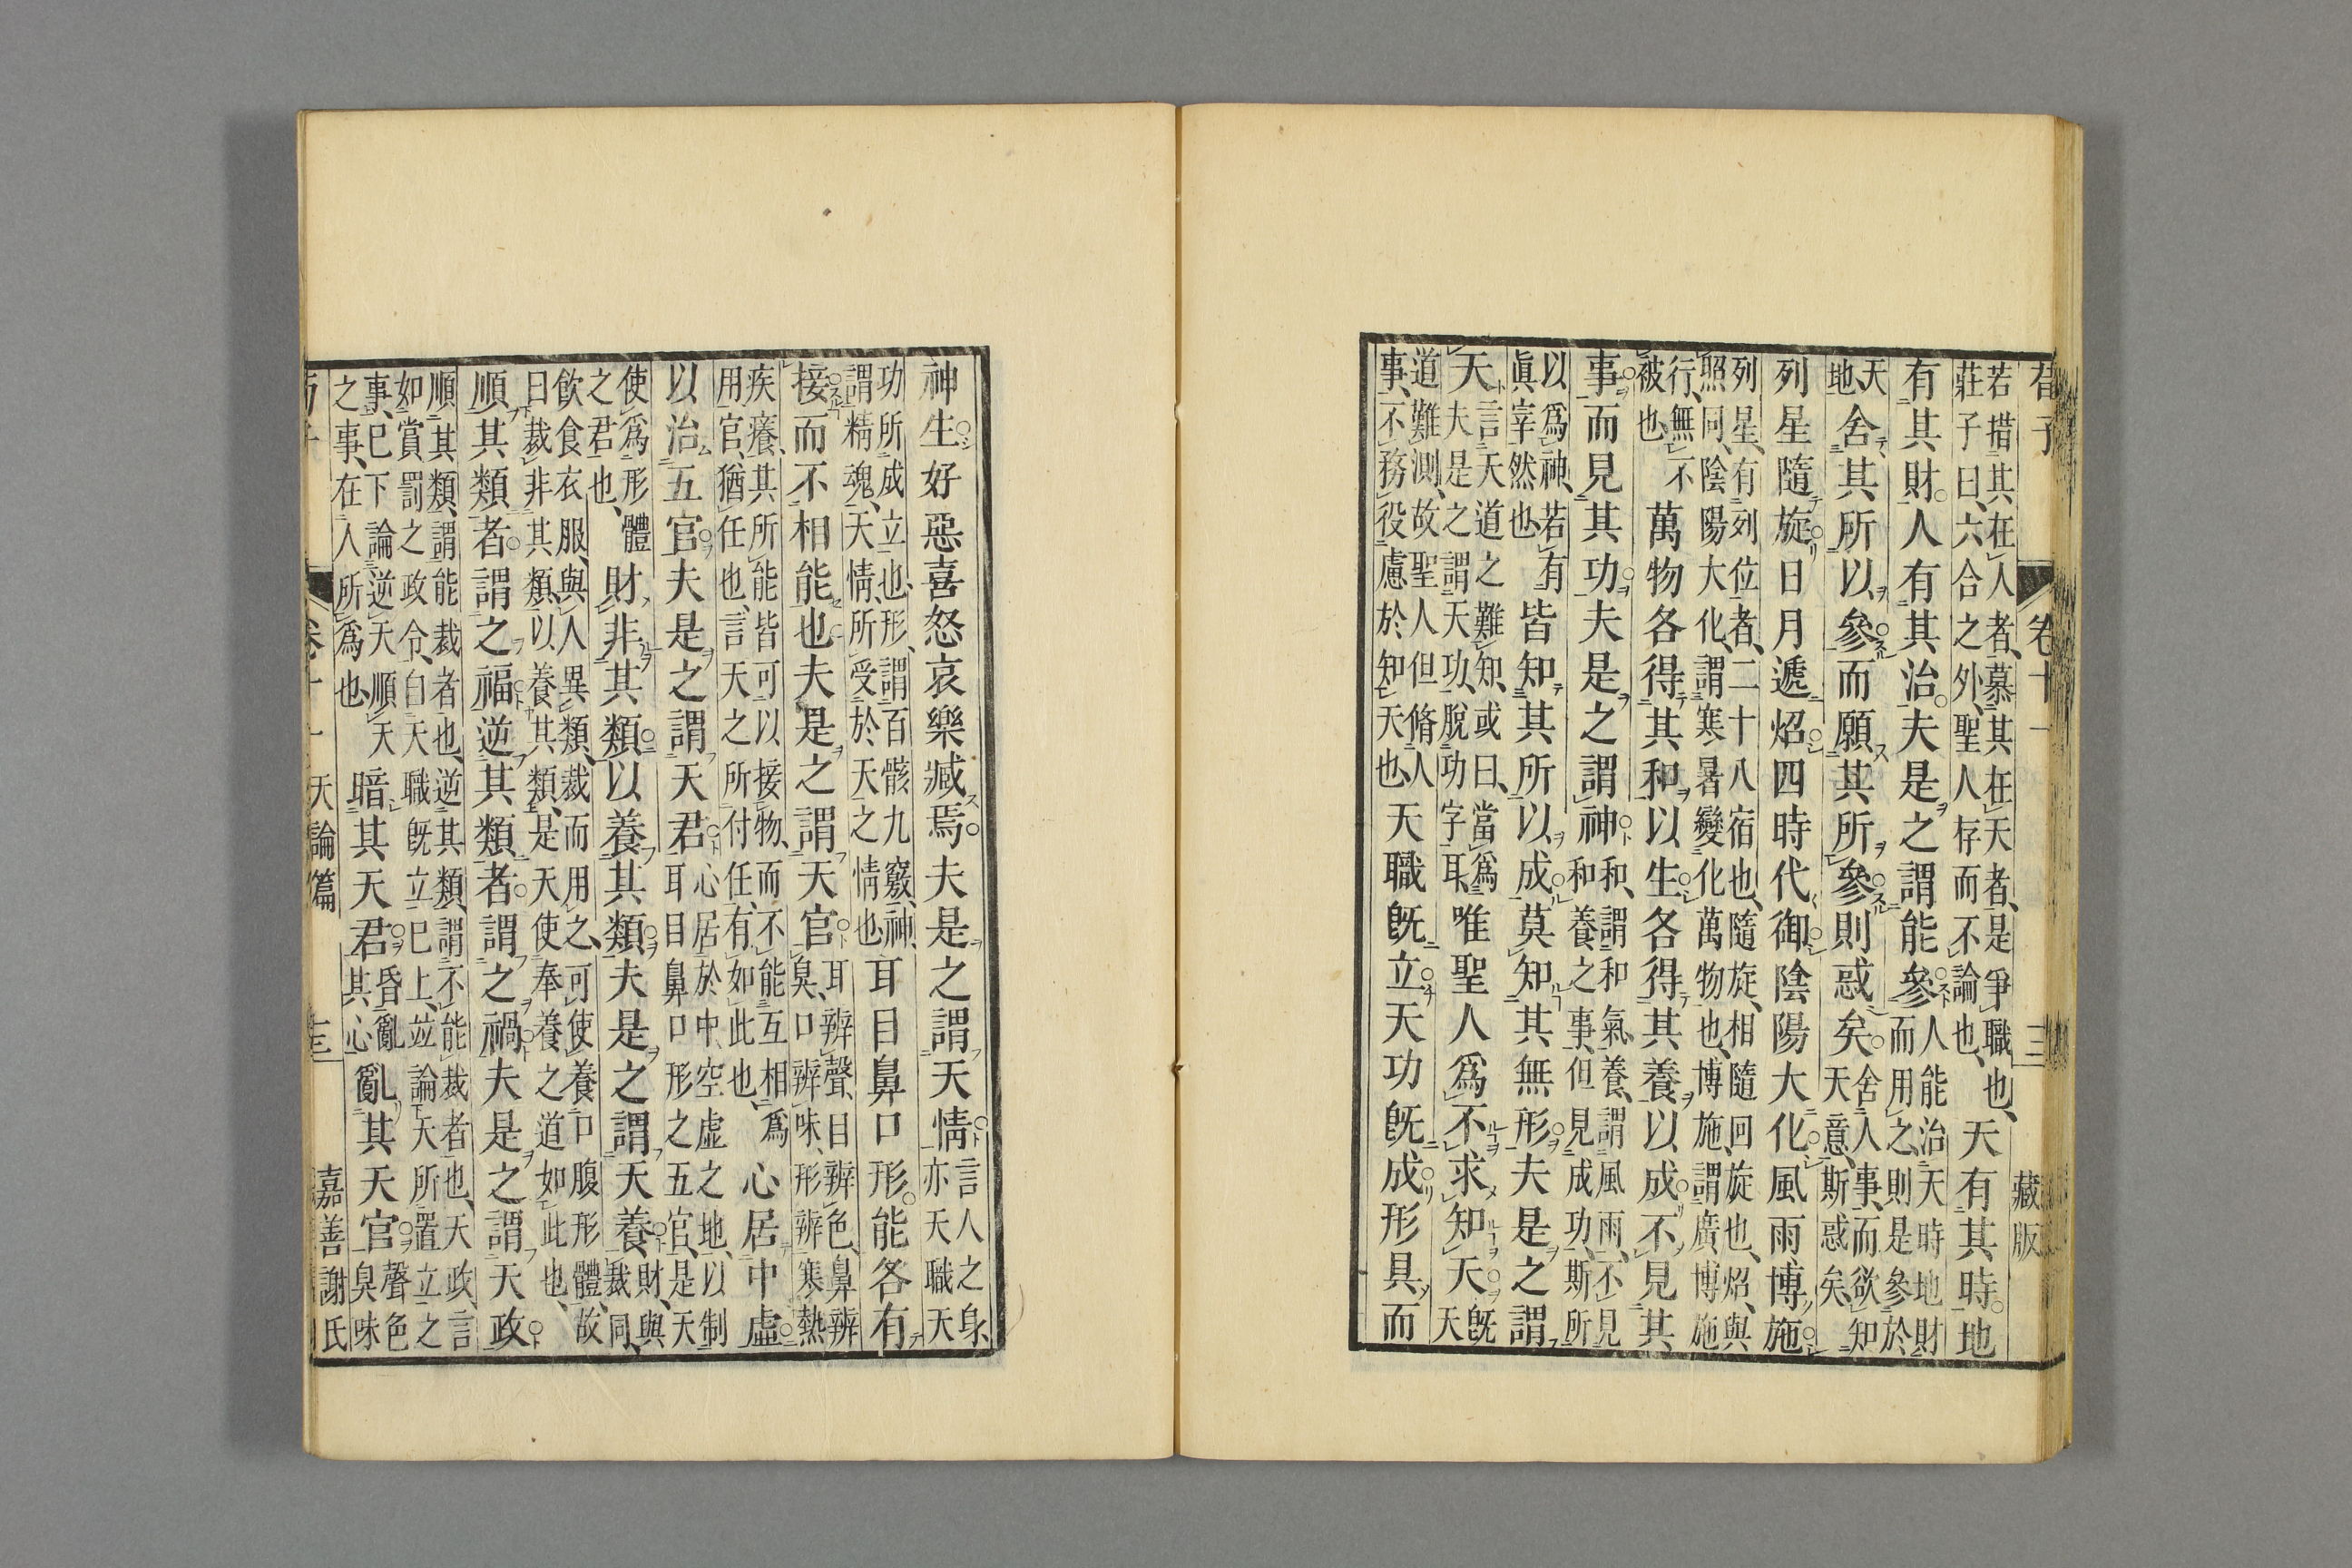 荀子 卷十一 三 藏版
若措其在人者、慕其在天者、是爭職也、
莊子曰、六合之外、聖人存而不論也、
天有其時。地
有其財。人有其治。夫是之謂能參
人能治天時地財
而用之、則是參於
天
地、
舍其所以參而願其所參則惑矣。
舍人事、而欲知
天意、斯惑矣、
列星隨旋日月遞炤四時代御陰陽大化風雨博施
列星、有列位者、二十八宿也、隨旋、相隨回旋也、炤、與
照同、陰陽大化、謂寒暑變化萬物也、博施、謂廣博施
行、無不
被也、
萬物各得其和以生各得其養以成不見其
事而見其功夫是之謂神
和、謂和氣、養、謂風雨、不見
和養之事、但見成功、斯所
以爲神、若有
眞宰然也
皆知其所以成莫知其無形夫是之謂
天
言天道之難知、或曰、當爲
夫是之謂天功、脫功字耳、
唯聖人爲不求知天
旣
天
道難測、故聖人但脩人
事、不務役慮於知天也、
天職旣立天功旣成形具而
神生好惡喜怒哀樂臧焉。夫是之謂天情
言人之身、
亦天職天
功所成立也、形、謂百骸九竅、神、
謂精魂、天情、所受於天之情也、
耳目鼻口形。能各有
接而不相能也夫是之謂天官
耳辨聲、目辨色、鼻辨
臭、口辨味、形辨寒熱
疾癢、其所能皆可以接物、而不能互相爲
用官、猶任也、言天之所付任、有如此也、
心居中虛
以治五官夫是之謂天君
心居於中空虛之地、以制
耳目鼻口形之五官、是天
使爲形體
之君也、
財非其類以養其類夫是之謂天養
財、與
裁同、
飲食衣服、與人異類、裁而用之、可使養口腹形體、故
曰裁非其類、以養其類、是天使奉養之道如此也、
順其類者。謂之福逆其類者。謂之禍夫是之謂天政
順其類、謂能裁者也、逆其類、謂不能裁者也、天政、言
如賞罰之政令、自天職旣立已上、竝論天所置立之
事、已下論逆天順天
之事、在人所爲也、
暗其天君
昏亂
其心
亂其天官
聲色
臭味
天論篇 三 嘉善謝氏